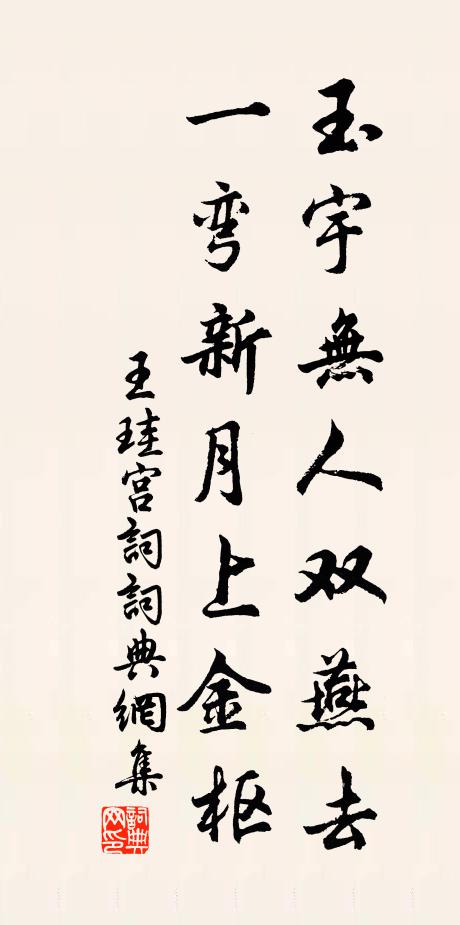 玉宇無人双燕去
一弯新月上金枢
王珪宫詞詞典網集
詞典网印